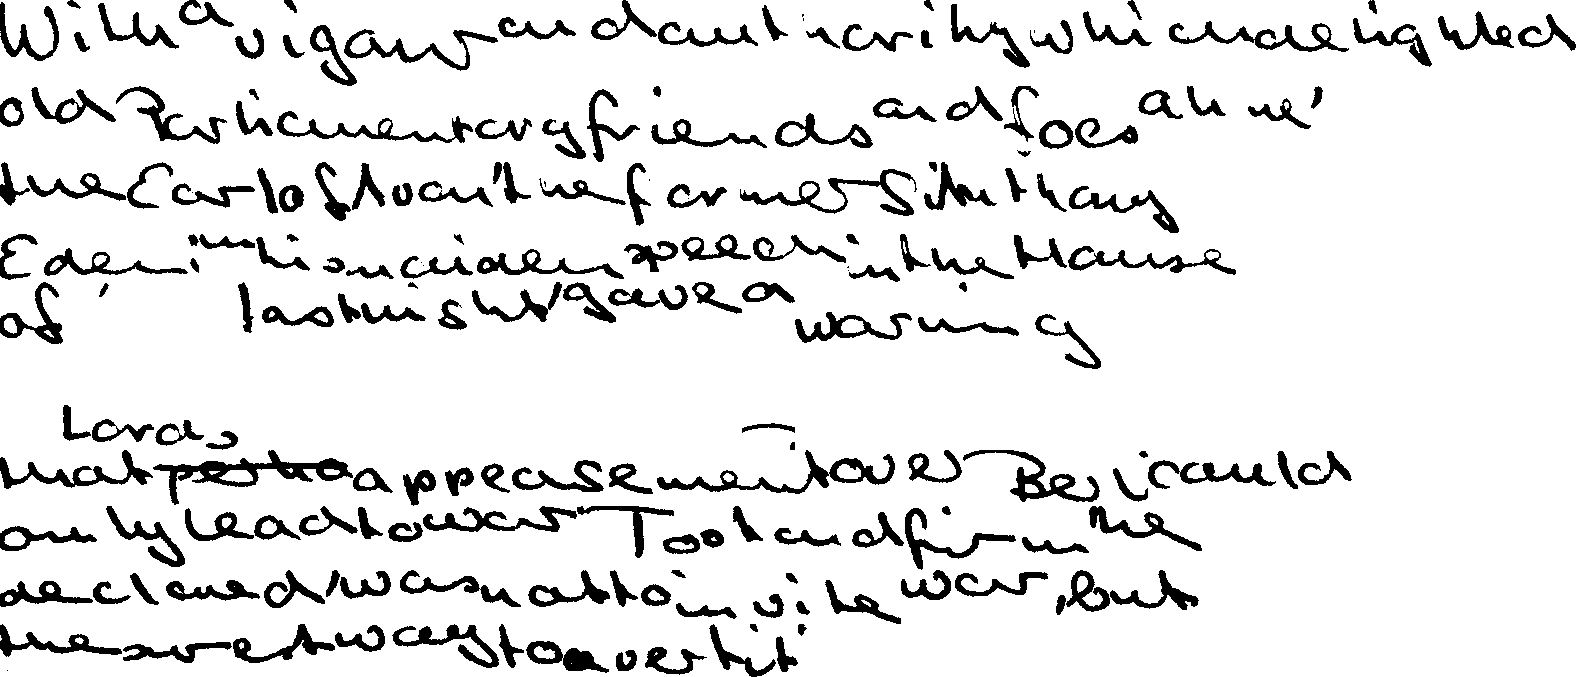 With a vigour and authority which delighted
old Parliamentary friends and foes alike,
the Earl of Avon, the former Sir Anthony
Eden, in his maiden speech in the House
of last night, gave a warning
Lords
that appeasement over Berlin could
only lead to war. To stand firm, he
declared, was not to invite war, but
the surest way to avert it.